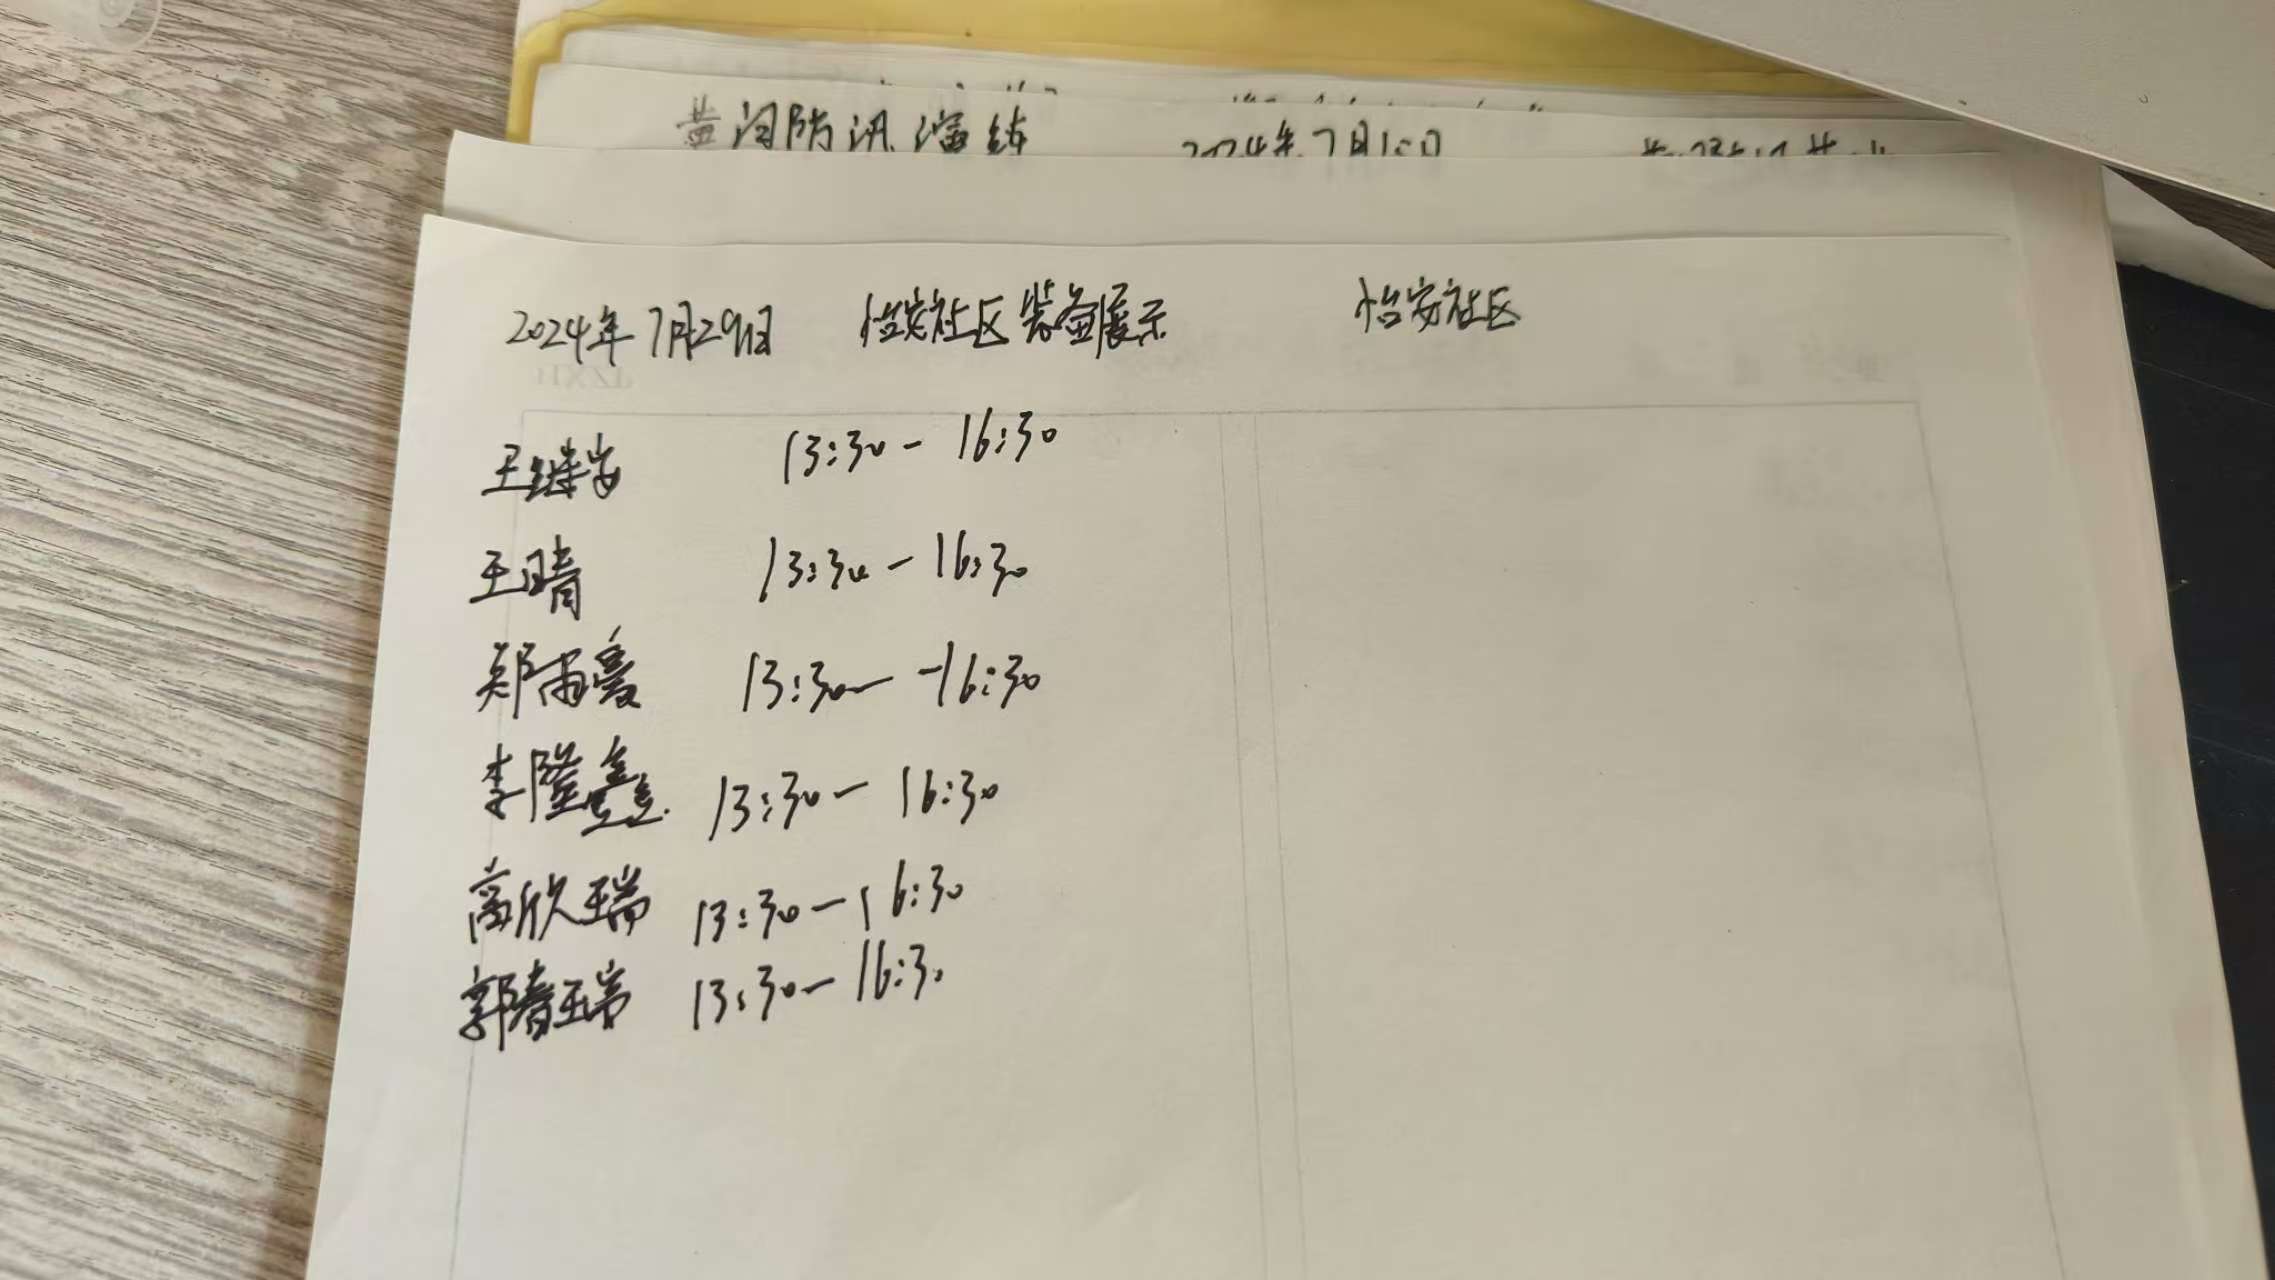 黄河防汛演练 2024年7月10日
2024年7月29日 怡安社区装备展示 怡安社区
王继安 13:30-16:30
王晴 13:30-16:30
郑雨 13:30-16:30
李隆鑫 13:30-16:30
高欣瑞 13:30-16:30
郭春瑞 13:30-16:30